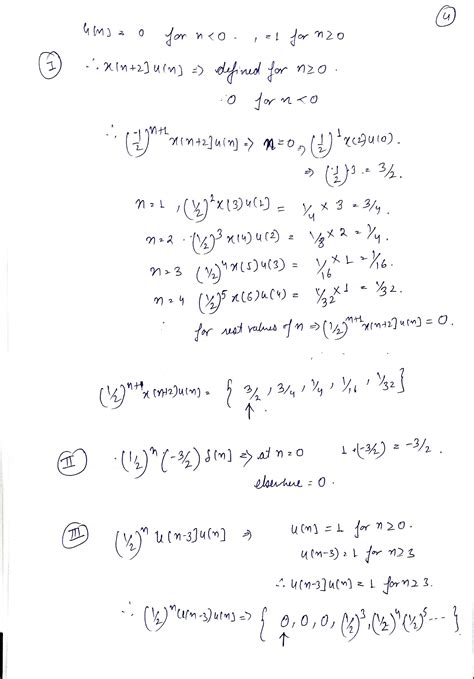 4
u[n] = 0 for n<0. , =1 for n≥0
I ∴ x[n+2]u[n] => defined for n≥0.
0 for n<0
∴ (1/2)^{n+1} x[n+2]u[n] => n=0, (1/2)^1 x(2)u(0).
=> (1/2)3 = 3/2.
n=1, (1/2)^2 x(3)u(1) = 1/4 × 3 = 3/4.
n=2 · (1/2)^3 x(4)u(2) = 1/8 × 2 = 1/4.
n=3 (1/2)^4 x(5)u(3) = 1/16 × 1 = 1/16.
n=4 (1/2)^5 x(6)u(4) = 1/32 × 1 = 1/32.
for rest values of n => (1/2)^{n+1} x[n+2]u[n] = 0.
(1/2)^{n+1} x[n+2]u[n] = { 3/2, 3/4, 1/4, 1/16, 1/32 }
↑
II · (1/2)^n (-3/2) δ[n] => at n=0 1·(-3/2) = -3/2.
elsewhere = 0.
III (1/2)^n u[n-3]u[n] => u[n] = 1 for n≥0.
u(n-3) = 1 for n≥3
∴ u[n-3]u[n] = 1 for n≥3.
∴ (1/2)^n u(n-3)u[n] => { 0, 0, 0, (1/2)^3, (1/2)^4, (1/2)^5 ... }
↑